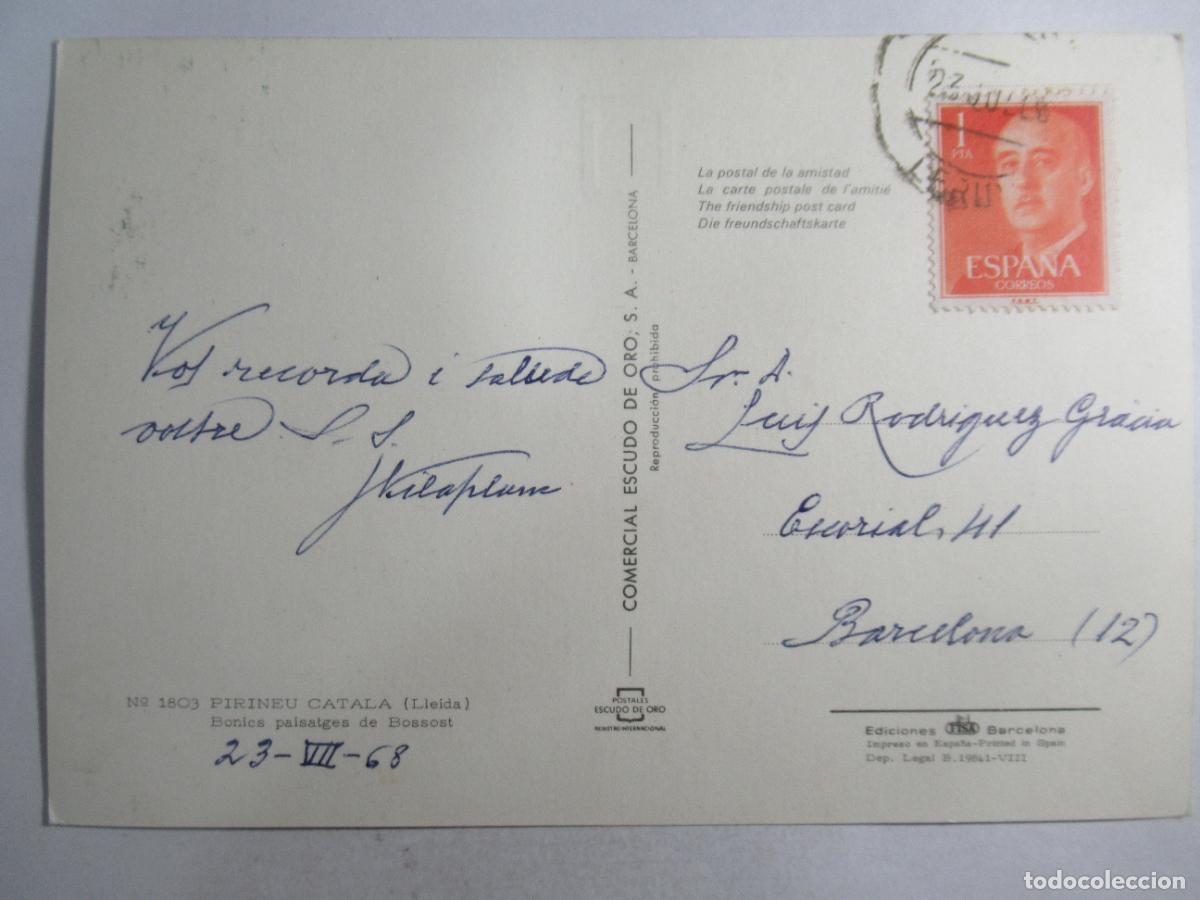 Vos recorda i saluda
vostre S. S.
JVilaplana
Nº 1803 PIRINEU CATALA (Lleida)
Bonics paisatges de Bossost
23-VII-68
COMERCIAL ESCUDO DE ORO, S. A. - BARCELONA
Reproducción prohibida
POSTALES
ESCUDO DE ORO
REGISTRO INTERNACIONAL
La postal de la amistad
La carte postale de l'amitié
The friendship post card
Die freundschaftskarte
1
PTA
ESPAÑA
CORREOS
F.N.M.T.
Sr. D.
Luis Rodriguez Gràcia
Escorial, 41
Barcelona (12)
Ediciones FISA Barcelona
Impreso en España-Printed in Spain
Dep. Legal B. 19841-VIII
todocoleccion